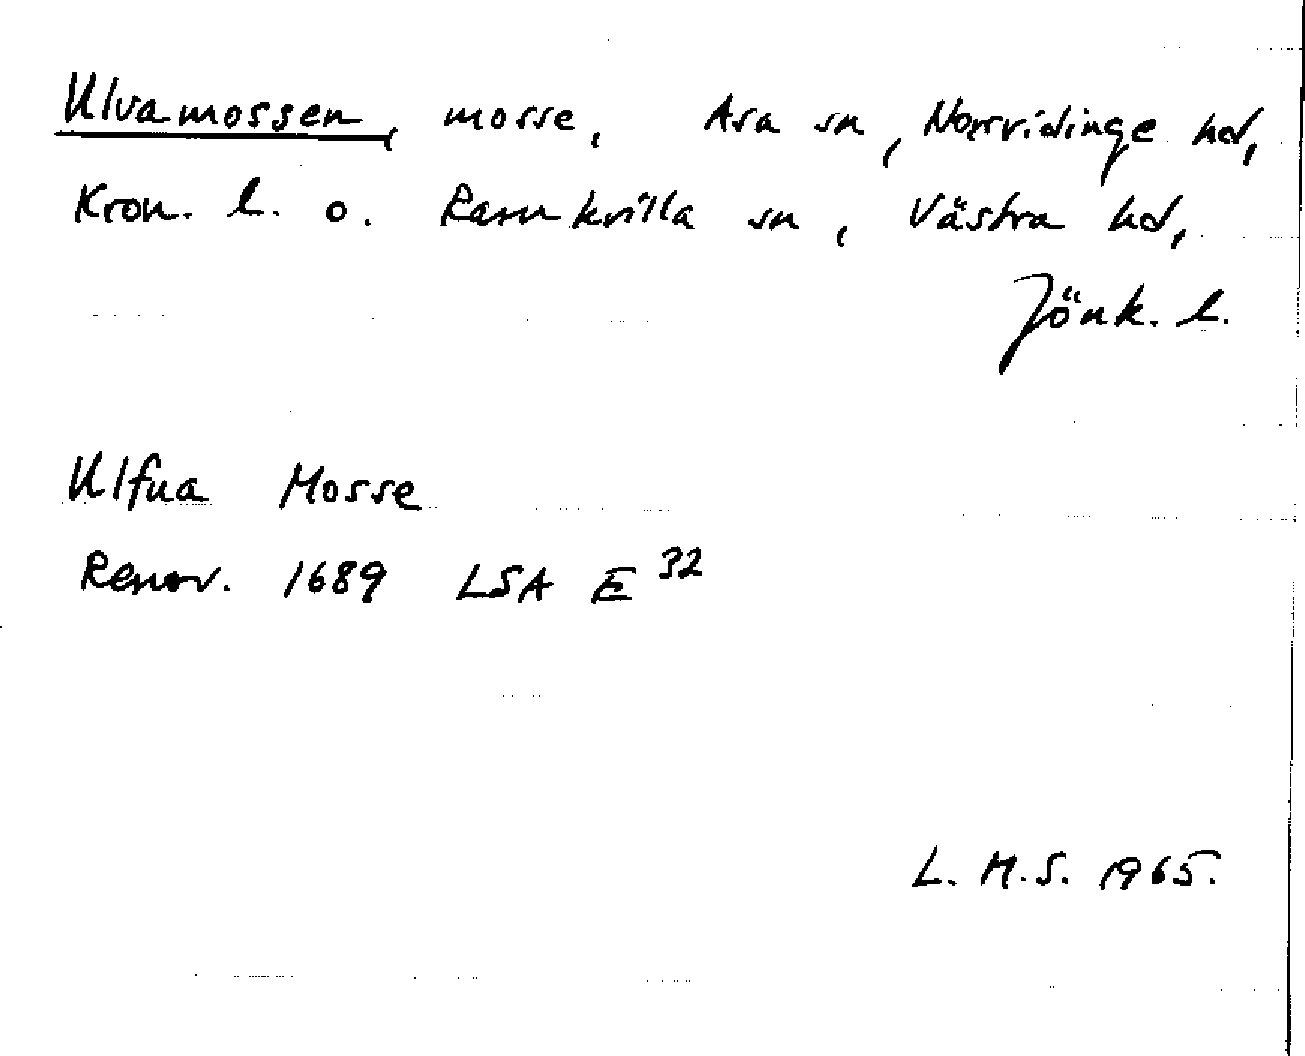 Ulvamossen, mosse, Asa sn, Norrvidinge hd,
Kron. l. o. Ramkvilla sn, Västra hd,
Jönk. l.
Ulfua Mosse
Renov. 1689 LSA E 32
L. M. S. 1965.